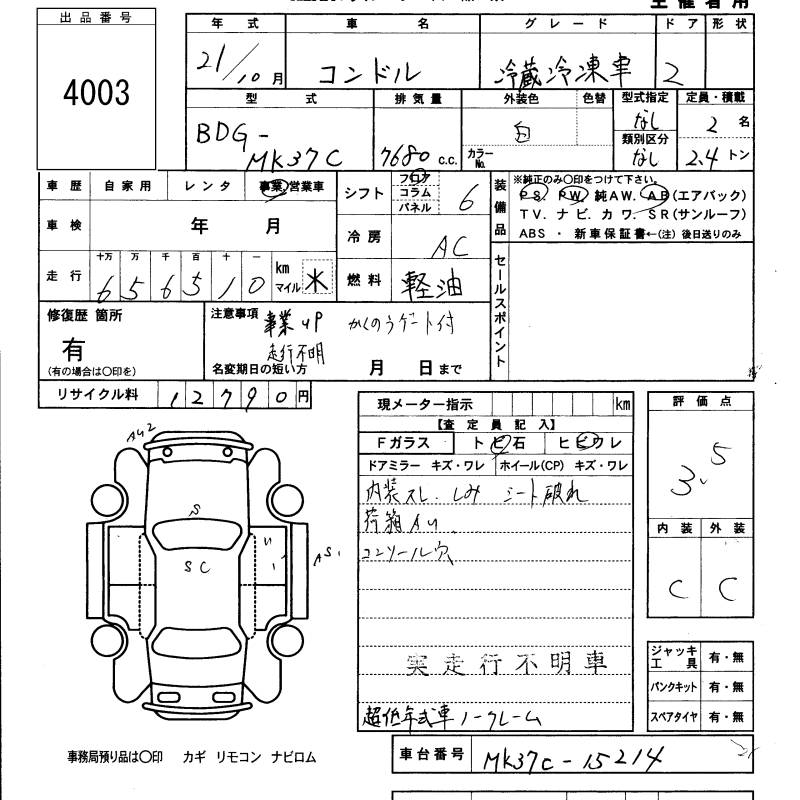 出品番号
4003
年式 車名 グレード ドア 形状
21/10月 コンドル 冷蔵冷凍車 2
型式 排気量 外装色 色替 型式指定 定員・積載
BDG-MK37C 7680 c.c. カラーNo. 白 なし 2名
類別区分
なし 2.4トン
車歴 自家用 レンタ 事業・営業車
シフト フロア コラム パネル 6
装備品 ※純正のみ○印をつけて下さい。
PS. PW. 純AW. AB(エアバック)
TV. ナビ. カワ. SR(サンルーフ)
ABS ・ 新車保証書←(注)後日送りのみ
車検 年 月
冷房 AC
走行 十万 万 千 百 十 一
656510 km マイル 米
燃料 軽油
セールスポイント
修復歴 箇所
有
(有の場合は○印を)
注意事項 事業UP かくのうゲート付
走行不明
名変期日の短い方 月 日まで
リサイクル料 12790円
現メーター指示 km
【査定員記入】
Fガラス トビ石 ヒビワレ
ドアミラー キズ・ワレ ホイール(CP) キズ・ワレ
内装スレ. しみ シート破れ
荷箱AU
コンソール穴
実走行不明車
超低年式車ノークレーム
評価点
3.5
内装 外装
C C
AU2
S
SC
AS1
ジャッキ工具 有・無
パンクキット 有・無
スペアタイヤ 有・無
車台番号 MK37C-15214
事務局預り品は○印 カギ リモコン ナビロム